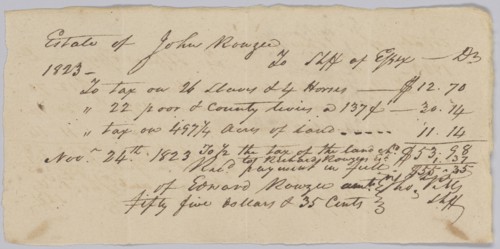 Estate of John Rouzee
To Shff of Essex — Dr
1823 —
To tax on 26 Slaves & 4 Horses — $12.70
" 22 poor & County levies @ 137¢ — 30.14
" tax on 497¼ Acres of land ----- 11.14
$53.98
Novr 24th 1823 To ½ the tax of the land of Richard Rouzee 1.37
$55.35
Recd payment in full
of Edward Rouzee amtg
fifty five dollars & 35 Cents
Shff